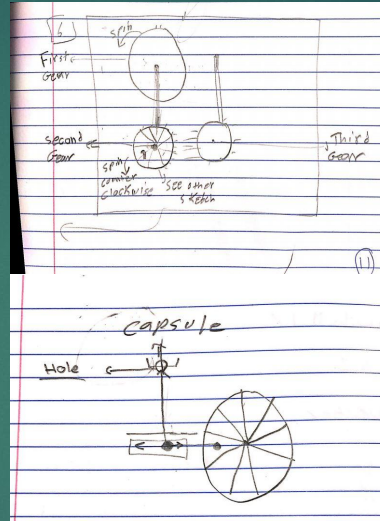 6
spin
First
Gear
second
Gear
Third
Gear
spin
counter
clockwise
see other
sketch
11
capsule
Hole